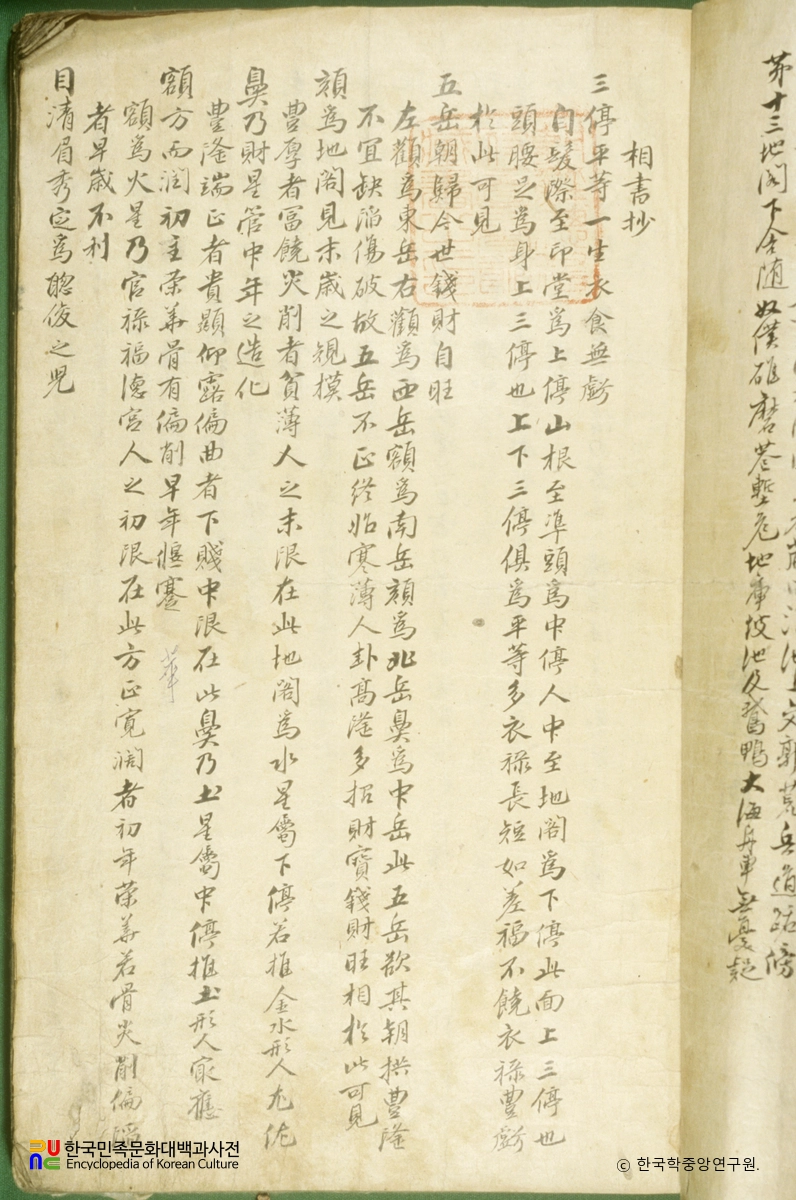 第十三地閣下舍随奴僕碓磨巷塹危地庫坡池及鵞鴨大海舟車無憂疑
相書抄
三停平等一生衣食無虧
自髮際至印堂爲上停山根至準頭爲中停人中至地閣爲下停此面上三停也
頭腰足爲身上三停也上下三停俱爲平等多衣禄長短如差福不饒衣禄豊虧
於此可見
五岳朝歸今世錢財自旺
左顴爲東岳右顴爲西岳額爲南岳頦爲北岳鼻爲中岳此五岳欲其朝拱豊隆
不宜缺陷傷破故五岳不正終始寒薄人卦高隆多招財寶錢財旺相於此可見
頦爲地閣見末歲之規模
豊厚者冨饒尖削者貧薄人之末限在此地閣爲水星属下停若推金水形人尤佐
鼻乃財星管中年之造化
豊隆端正者貴顯仰露偏曲者下賤中限在此鼻乃土星属中停推土形人最應
額方而濶初主栄華骨有偏削早年偃蹇
華
額爲火星乃官禄福德宮人之初限在此方正寬濶者初年栄華若骨尖削偏
者早歲不利
目清眉秀定爲聡俊之児
한국민족문화대백과사전
Encyclopedia of Korean Culture
© 한국학중앙연구원.